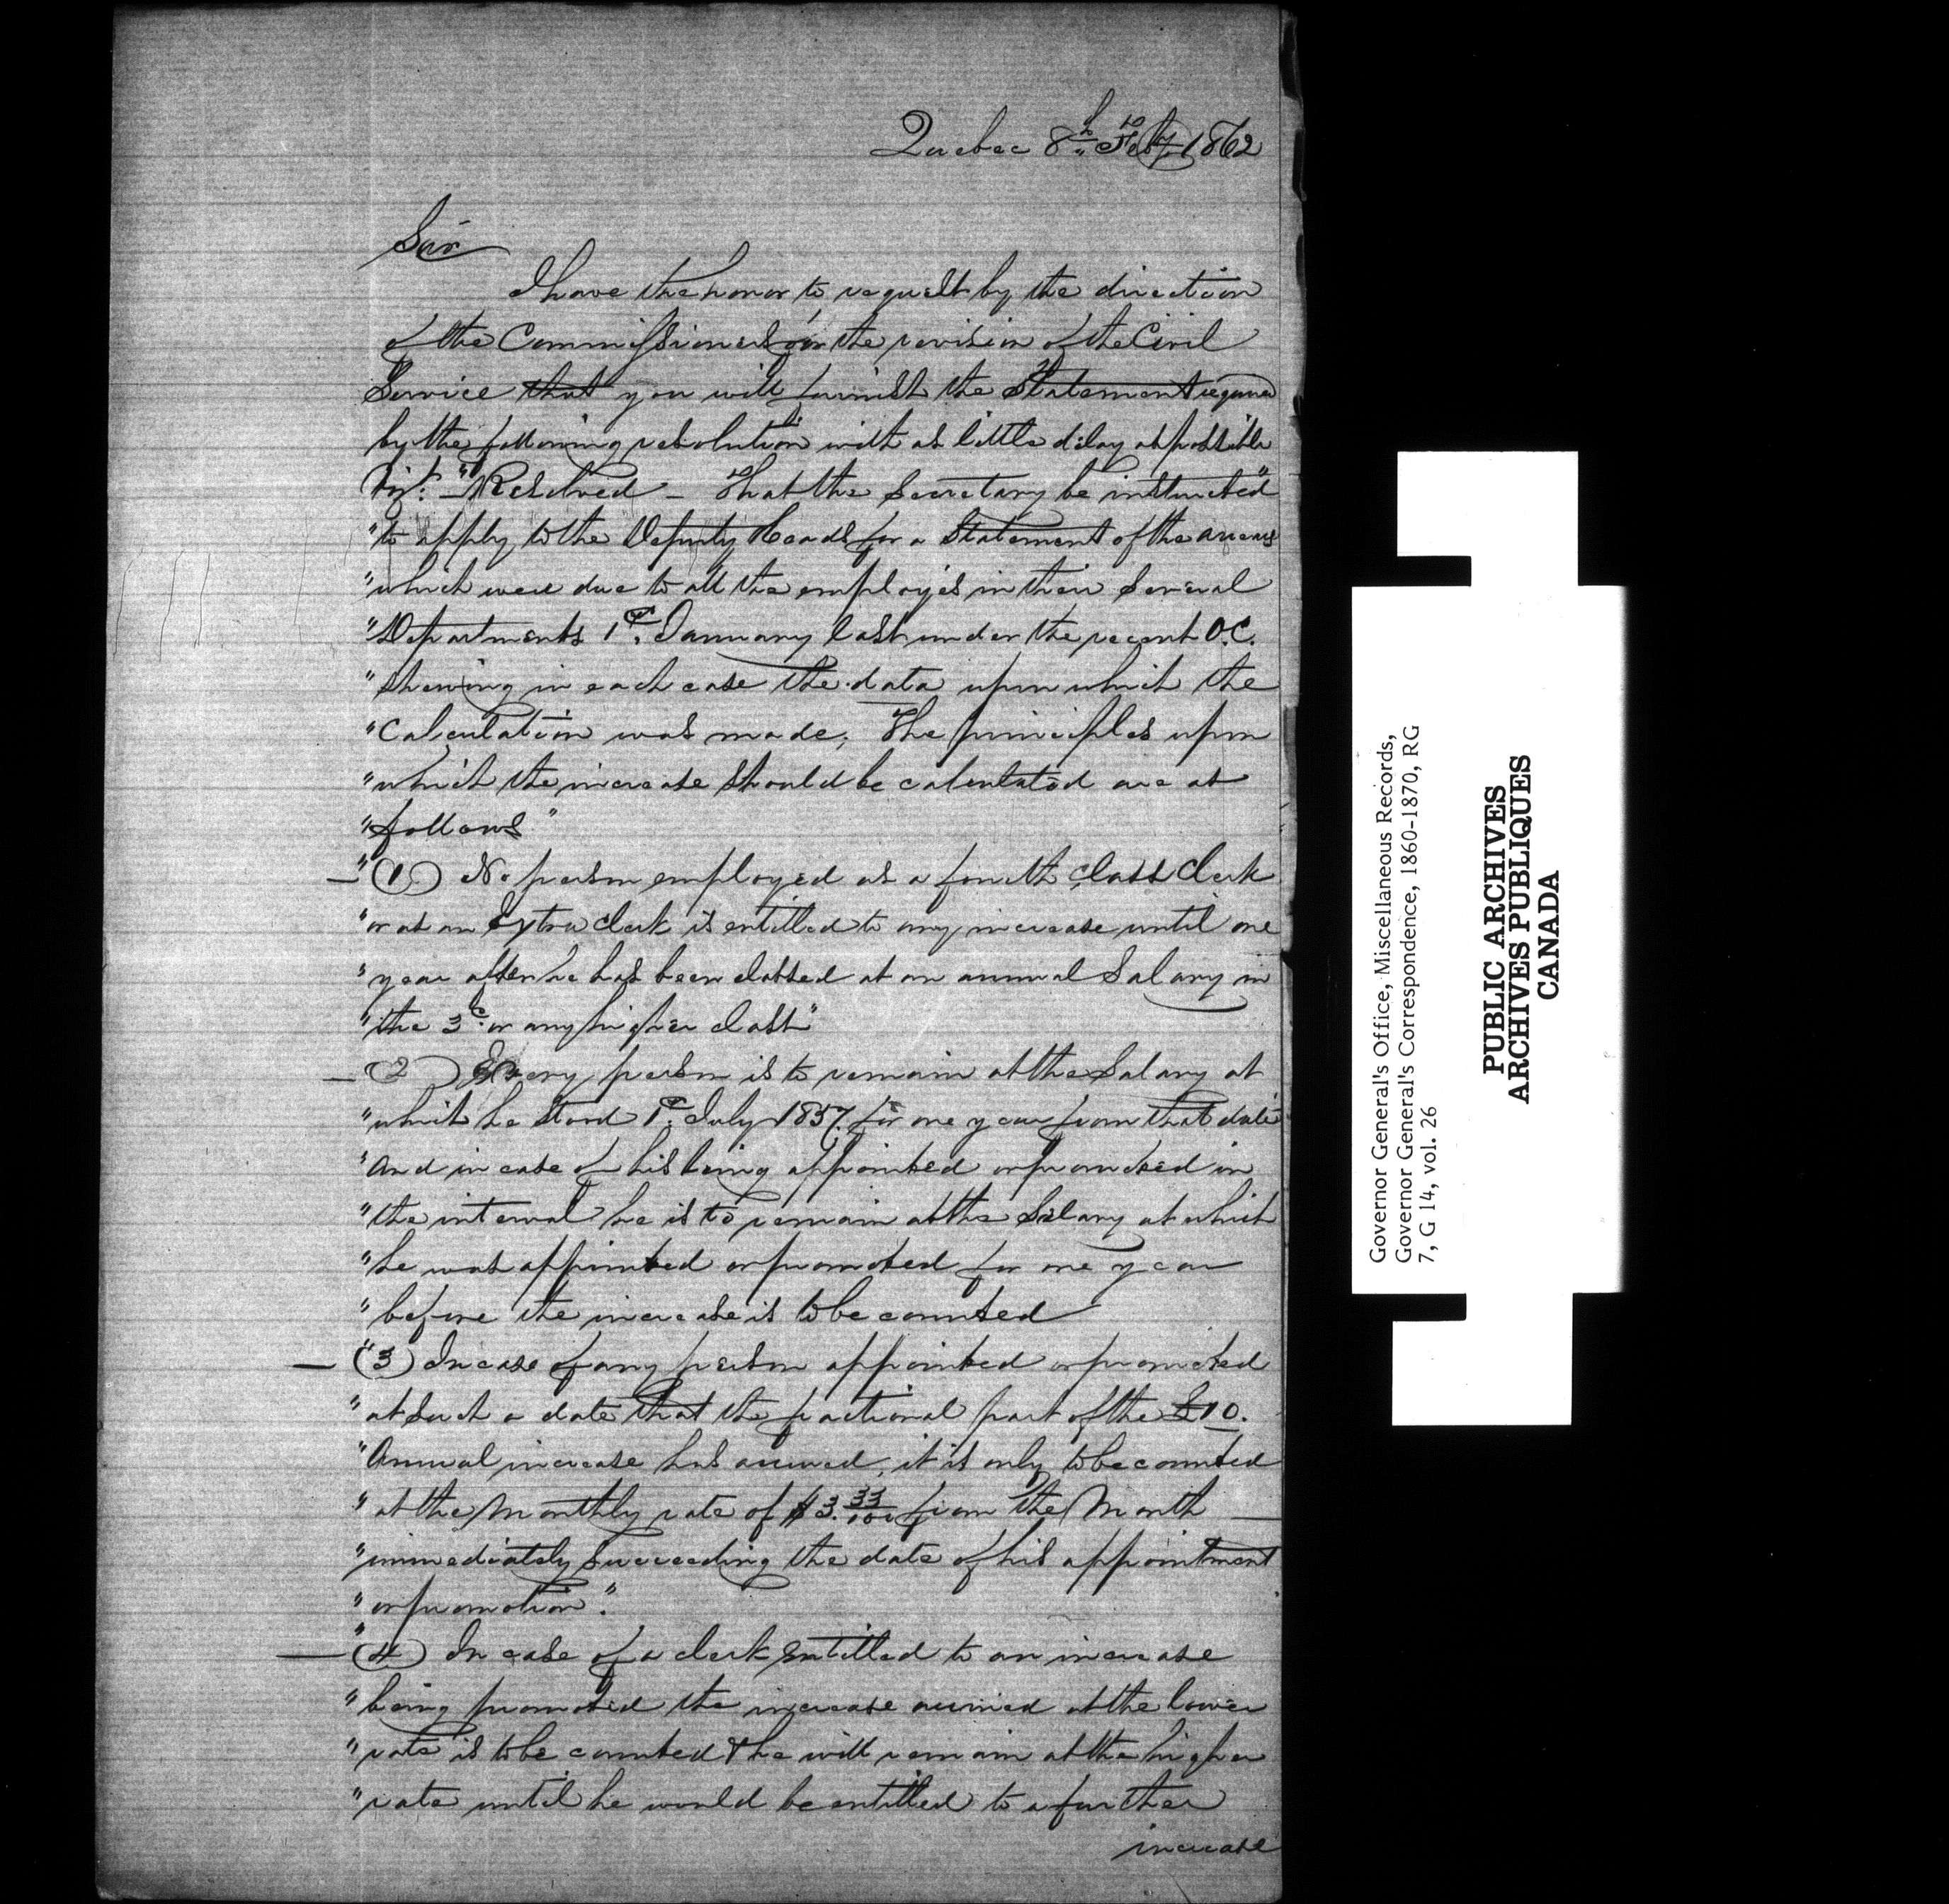 Quebec 8th Feby 1862
Sir
I have the honor to request by the direction
of the Commissioners for the revision of the Civil
Service that you will furnish the Statement required
by the following resolution with as little delay as possible
Vizt: "Resolved – That the Secretary be instructed"
"to apply to the Deputy Heads for a Statement of the arrears
"which were due to all the employés in their Several
"Departments 1st January last under the recent O.C.
"shewing in each case the data upon which the
"Calculation was made; The principles upon
"which the increase should be calculated are as
"follows"
— "(1) No person employed as a fourth Class Clerk
"or as an Extra Clerk is entitled to any increase until one
"year after he has been classed at an annual Salary in
"the 3d or any higher class"
— (2) Every person is to remain at the Salary at
"which he stood 1st July 1857 for one year from that date
"And in case of his being appointed or promoted in
"the interval he is to remain at the Salary at which
"he was appointed or promoted for one year
"before the increase is to be counted
— "(3) In case of any person appointed or promoted
"at such a date that the fractional part of the £10.
"Annual increase has accrued, it is only to be counted
"at the Monthly rate of $3.33/100 from the Month —
"immediately succeeding the date of his appointment
"or promotion".
— "(4) In case of a clerk entitled to an increase
"being promoted the increase accrued at the lower
"rate is to be counted & he will remain at the higher
"rate until he would be entitled to a further
increase
Governor General's Office, Miscellaneous Records,
Governor General's Correspondence, 1860-1870, RG
7, G 14, vol. 26
PUBLIC ARCHIVES
ARCHIVES PUBLIQUES
CANADA